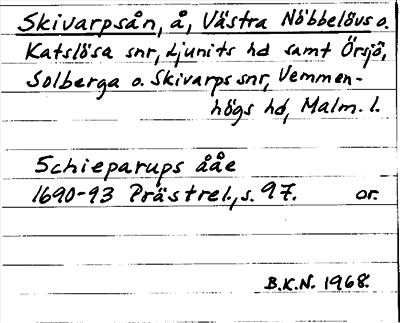 Skivarpsån, å, Västra Nöbbelövs o.
Katslösa snr, Ljunits hd samt Örsjö,
Solberga o. Skivarps snr, Vemmen-
högs hd, Malm. l.
Schieparups ååe
1690-93 Prästrel., s. 97. or.
B.K.N. 1968.